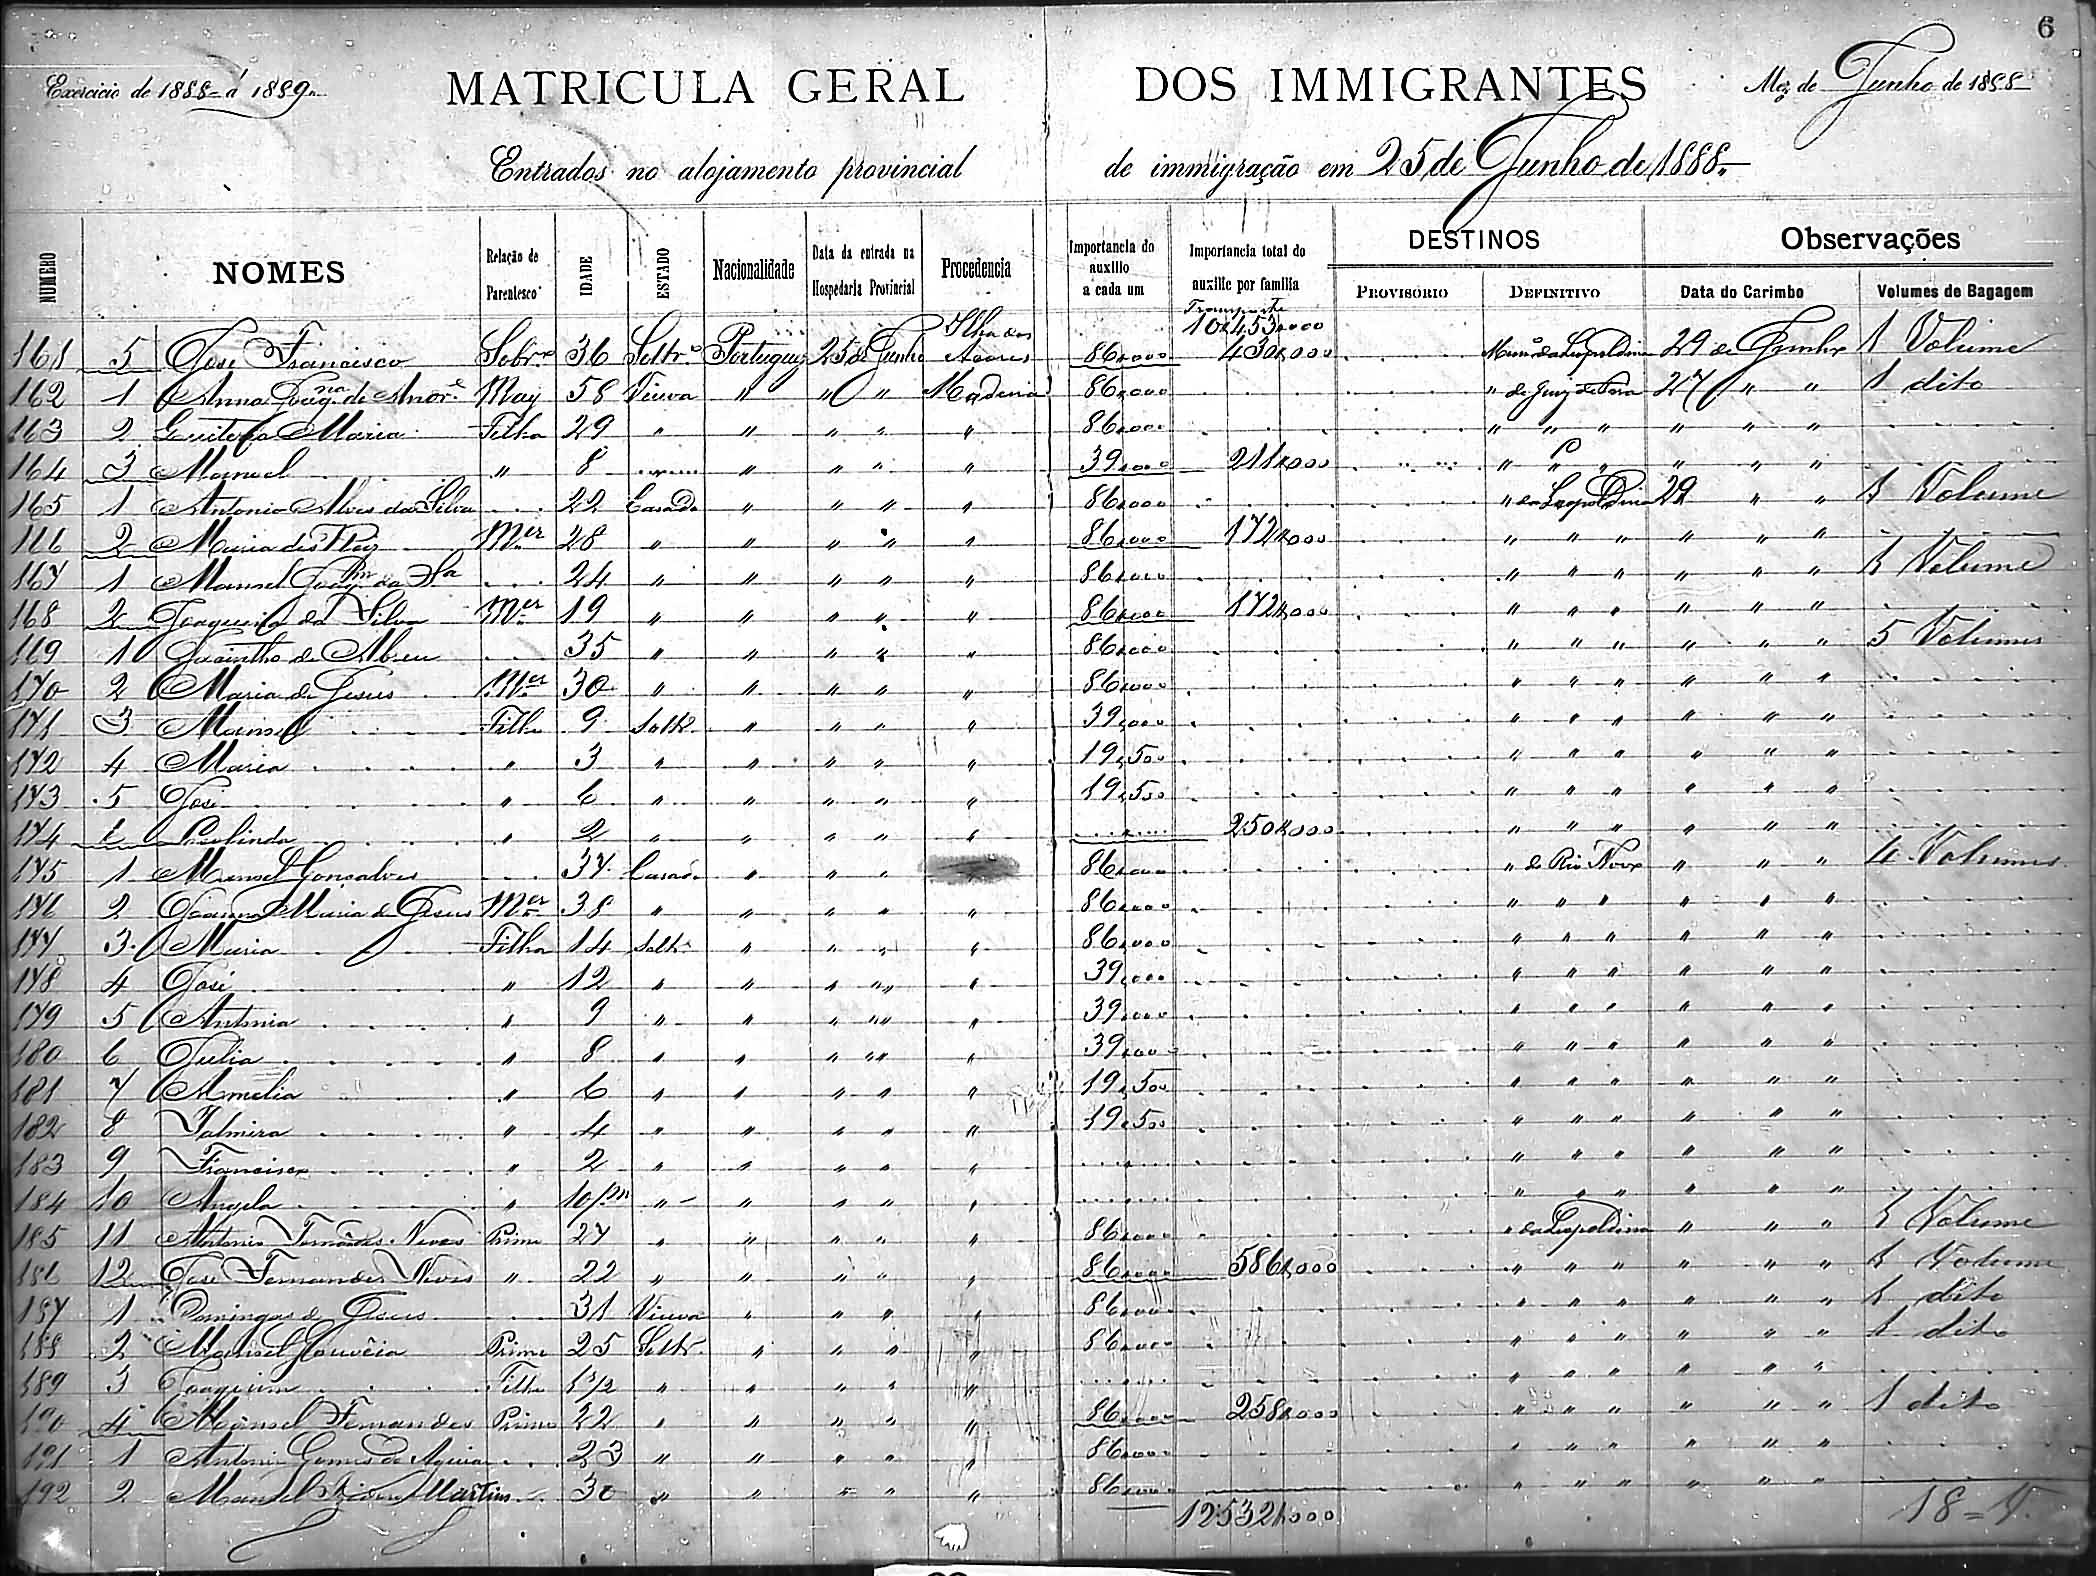 6
Exercicio de 1888 á 1889
MATRICULA GERAL DOS IMMIGRANTES
Mez de Junho de 1888
Entrados no alojamento provincial de immigração em 25 de Junho de 1888
NUMERO NOMES Relação de Parentesco IDADE ESTADO Nacionalidade Data da entrada na Hospedaria Provincial Procedencia Importancia do auxilio a cada um Importancia total do auxilio por familia DESTINOS PROVISORIO DEFINITIVO Observações Data do Carimbo Volumes de Bagagem
Transporte 10:453,000
161 5 José Francisco Sobr.º 36 Soltr.º Portuguez 25 de Junho Ilha dos Açores 86,000 430,000 da Leopoldina 29 de Junho 1 Volume
162 1 Anna Joaq.na de May 58 Viuva " " " Madeira 86,000 " de Juiz de Fora 27 " " 1 dito
163 2 Maria Filha 29 " " " " " 86,000 " " " " " "
164 3 Manuel " 8 " " " " 39,000 211,000 " " " " " "
165 1 Antonio Alves da Silva 22 Casado " " " " 86,000 " da Leopoldina 29 " " 1 Volume
166 2 Maria M.er 28 " " " " " 86,000 172,000 " " " " " "
167 1 Manuel Joaq.im da S.a 24 " " " " " 86,000 " " " " " " 1 Volume
168 2 Joaquina da Silva M.er 19 " " " " " 86,000 172,000 " " " " " "
169 1 Jacintho de Abreu 35 " " " " " 86,000 " " " " " " 5 Volumes
170 2 Maria de Jesus M.er 30 " " " " " 86,000 " " " " " "
171 3 Manuel Filho 9 Soltr.º " " " " 39,000 " " " " " "
172 4 Maria " 3 " " " " " 19,500 " " " " " "
173 5 José " 6 " " " " " 19,500 " " " " " "
174 6 " 2 " " " " " 250,000 " " " " " "
175 1 Manuel Gonçalves 37 Casado " " " 86,000 " do Rio Novo " " " 4 Volumes
176 2 Joanna Maria de Jesus M.er 38 " " " " " 86,000 " " " " " "
177 3 Maria Filha 14 Soltr.ª " " " " 86,000 " " " " " "
178 4 José " 12 " " " " " 39,000 " " " " " "
179 5 Antonia " 9 " " " " " 39,000 " " " " " "
180 6 Julia " 8 " " " " " 39,000 " " " " " "
181 7 Amelia " 6 " " " " " 19,500 " " " " " "
182 8 Palmira " 4 " " " " " 19,500 " " " " " "
183 9 Francisco " 2 " " " " " " " " " " "
184 10 Angela " 10/m " " " " " " " " " " "
185 11 Antonio Fernandes Neves Primo 27 " " " " " 86,000 " da Leopoldina " " " 1 Volume
186 12 José Fernandes Neves " 22 " " " " " 86,000 586,000 " " " " " " 1 Volume
187 1 Domingas de Jesus 31 Viuva " " " " 86,000 " " " " " " 1 dito
188 2 Manuel Gouvêia Primo 25 Soltr.º " " " " 86,000 " " " " " " 1 dito
189 3 Joaquim Filho 1 1/2 " " " " " " " " " " "
190 4 Manuel Fernandes Primo 22 " " " " " 86,000 258,000 " " " " " " 1 dito
191 1 Antonio Gomes de Aguiar 23 " " " " " 86,000 " " " " " "
192 2 Manuel Martins 30 " " " " " 86,000 " " " " " "
12:532,000
18 = V.